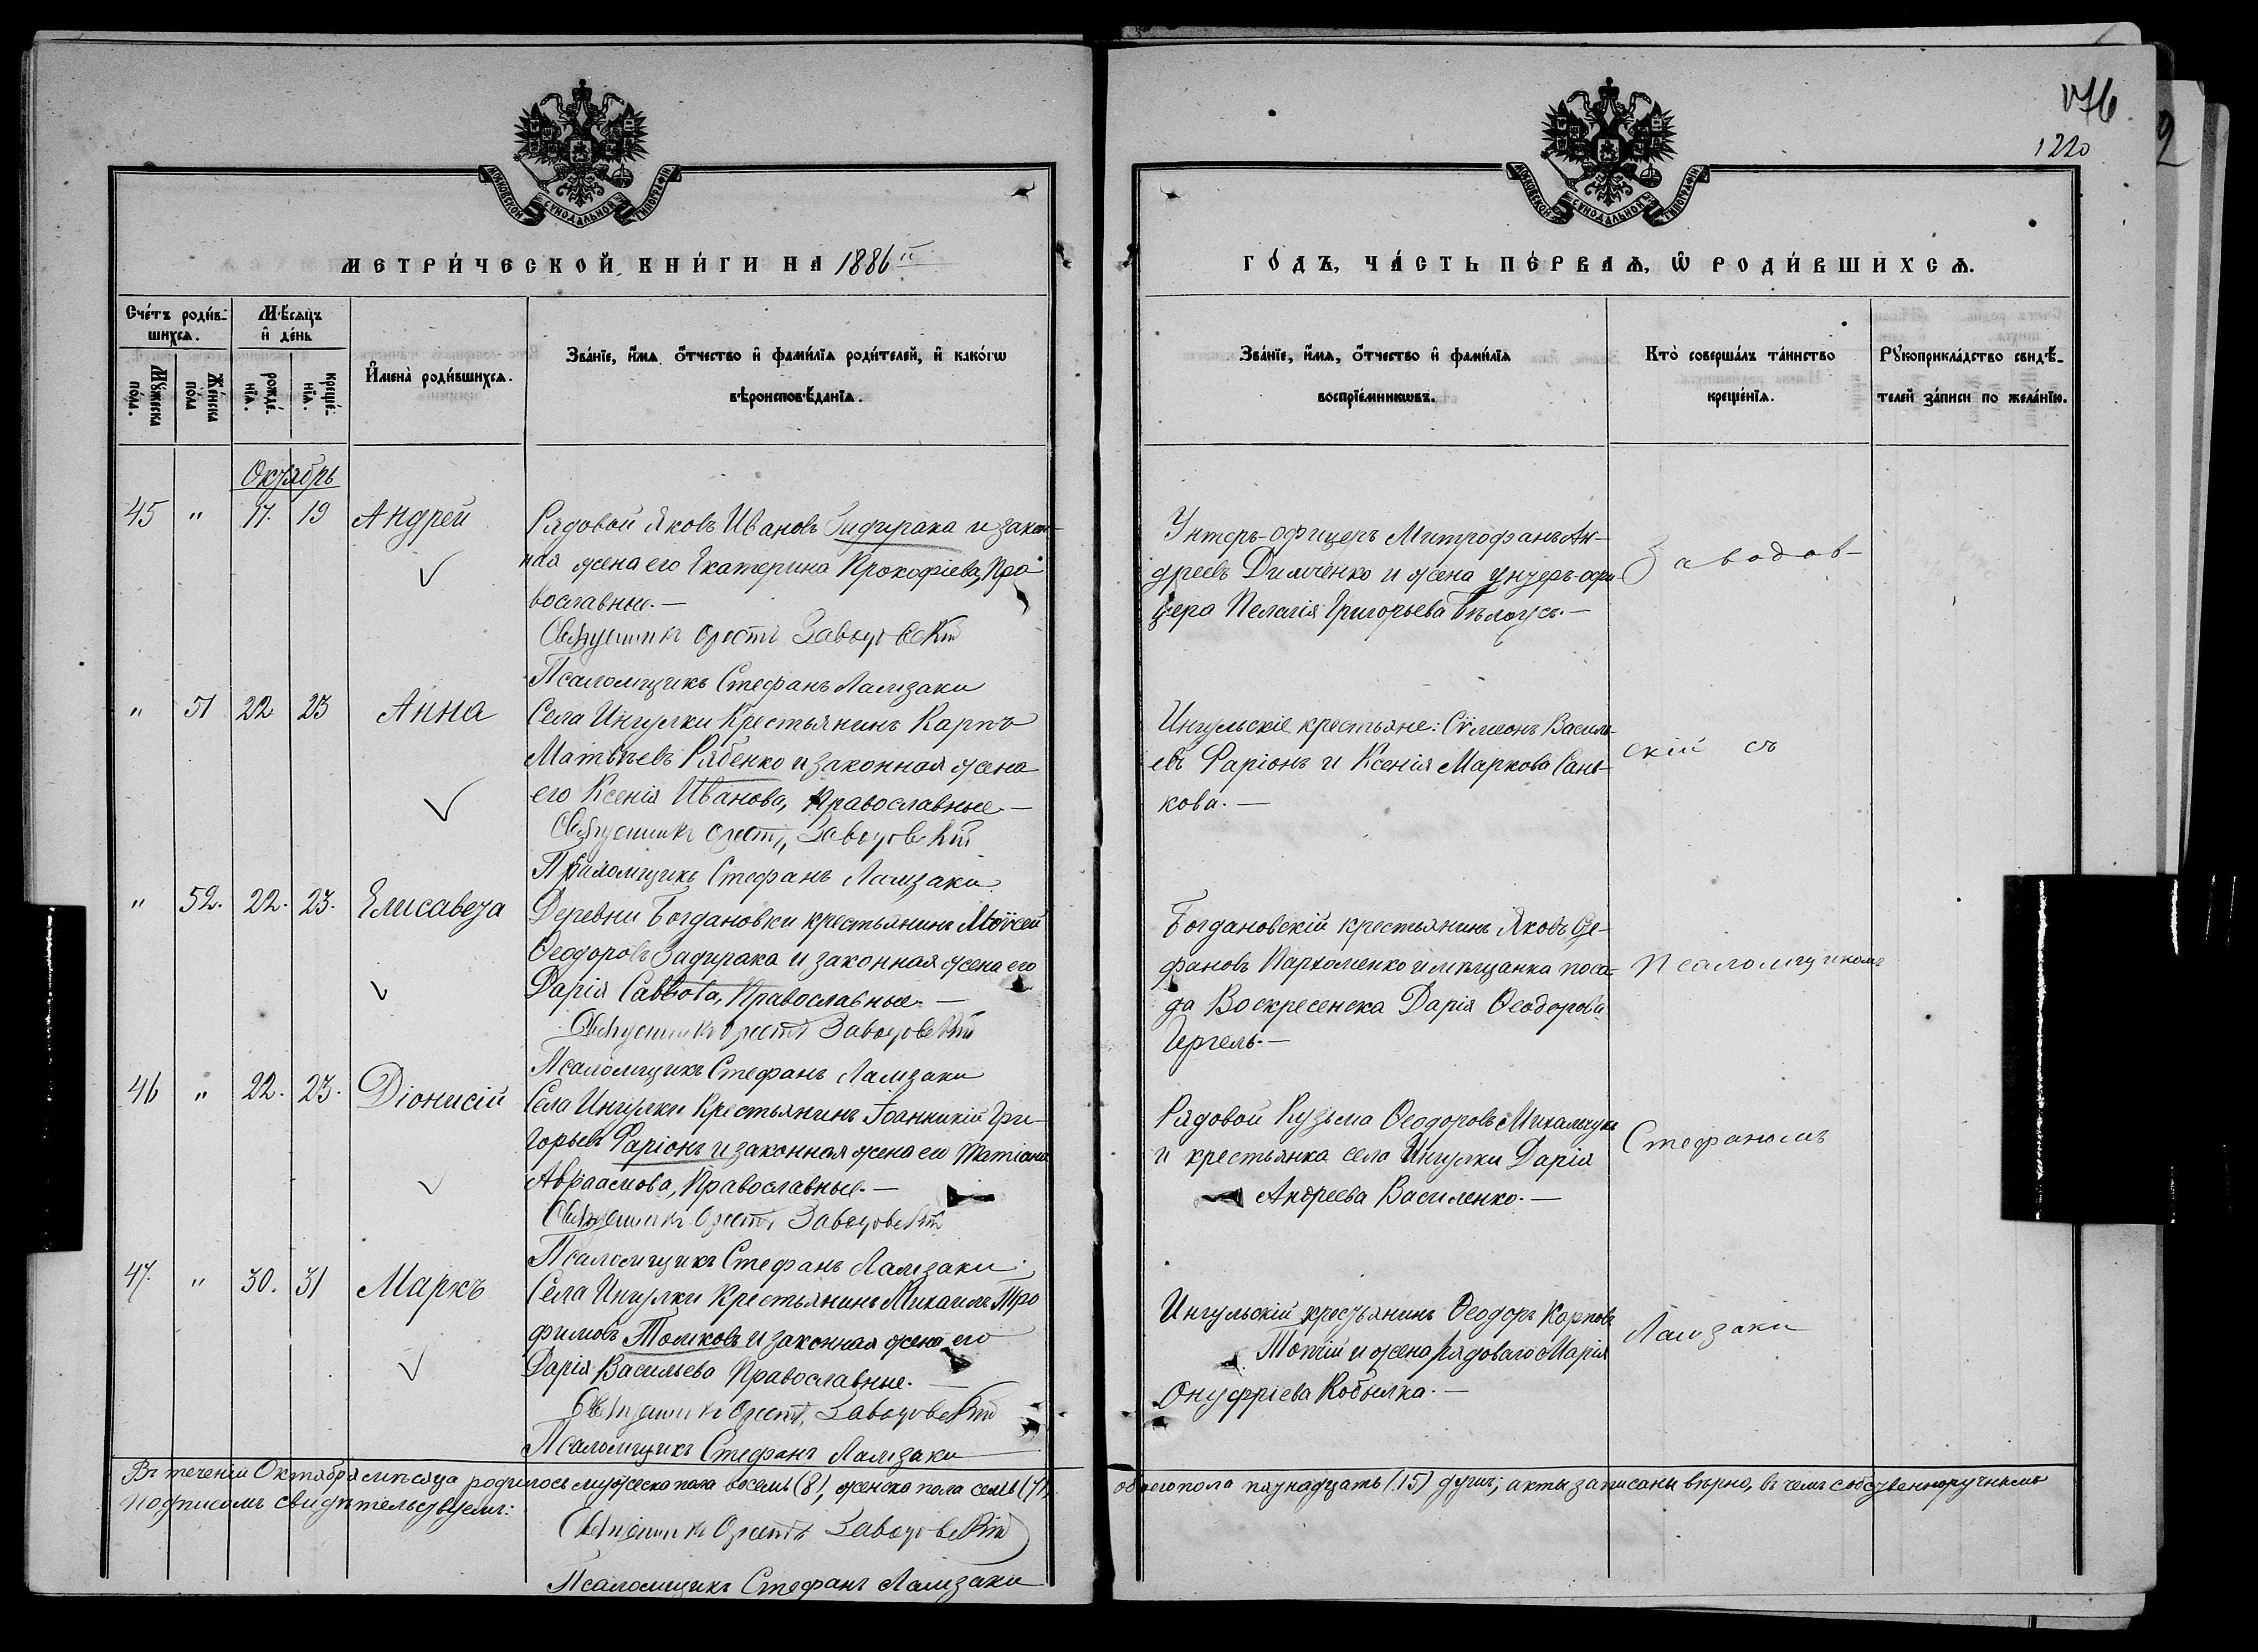 176
1220
2
МОСКОВСКОЙ СѴНОДАЛЬНОЙ ТИПОГРАФІИ
МОСКОВСКОЙ СѴНОДАЛЬНОЙ ТИПОГРАФІИ
МЕТРИ́ЧЕСКОЙ КНИ́ГИ НА 1886й
ГО́ДЪ, ЧА́СТЬ ПЕ́РВАѦ, Ѽ РОДИ́ВШИХСѦ.
Сче́тъ роди́в-
шихсѧ.
Мѣ́сѧцъ
и҆ де́нь
Мꙋ́жеска
по́ла.
Же́нска
по́ла
рожде́-
нїѧ.
креще́-
нїѧ.
И҆мена̀ роди́вшихсѧ.
Зва́нїе, и҆́мѧ ѻ҆́тчество и҆ фами́лїѧ роди́телей, и҆ како́гѡ
вѣроисповѣ́данїѧ.
Зва́нїе, и҆́мѧ, ѻ҆́тчество и҆ фами́лїѧ
воспрїе́мникѡвъ.
Кто̀ соверша́лъ та́инство
креще́нїѧ.
Рꙋкоприкла́дство свидѣ́-
телей за́писи по жела́нїю.
Октябрь
45 " 17. 19 Андрей
Рядовой Яковъ Ивановъ Задирака и закон-
ная жена его Екатерина Прокофіева, Пра-
вославные.—
Священникъ Орестъ Заводовскій
Псаломщикъ Стефанъ Ламзаки
Унтеръ-офицеръ Митрофанъ Ан-
дреевъ Димченко и жена унтеръ-офи-
цера Пелагія Григорьева Бѣлоусъ.—
Заводов-
" 51 22 23 Анна
Села Ингулки Крестьянинъ Карпъ
Матвѣевъ Рябенко и законная жена
его Ксенія Иванова, Православные—
Священникъ Орестъ Заводовскій
Псаломщикъ Стефанъ Ламзаки
Ингульскіе крестьяне: Сѵмеонъ Василь-
евъ Фаріонъ и Ксенія Маркова Сань-
кова.—
скій съ
" 52. 22. 23. Елисавета
Деревни Богдановки крестьянинъ Моѵсей
Ѳеодоровъ Задирака и законная жена его
Дарія Саввова, Православные.—
Священникъ Орестъ Заводовскій
Псаломщикъ Стефанъ Ламзаки
Богдановскій крестьянинъ Яковъ Сте-
фановъ Пархоменко и мѣщанка поса-
да Воскресенска Дарія Ѳеодорова
Гергель.—
Псаломщикомъ
46 " 22. 23. Діонисій
Села Ингулки Крестьянинъ Іоанникій Гри-
горьевъ Фаріонъ и законная жена его Татіана
Авраамова, Православные.—
Священникъ Орестъ Заводовскій
Псаломщикъ Стефанъ Ламзаки
Рядовой Кузьма Ѳеодоровъ Михальчукъ
и крестьянка села Ингулки Дарія
Андреева Василенко.—
Стефаномъ
47. " 30. 31 Маркъ
Села Ингулки Крестьянинъ Михаилъ Тро
фимовъ Томковъ и законная жена его
Дарія Васильева Православные.—
Священникъ Орестъ Заводовскій
Псаломщикъ Стефанъ Ламзаки
Ингульскій крестьянинъ Ѳеодоръ Карповъ
Топчій и жена рядоваго Марія
Онуфріева Кобылка.—
Ламзаки
Въ теченіи Октября мѣсяца родилось мужеска пола восемь (8), женска пола семь (7),
обоего пола пятнадцать (15) душъ; акты записаны вѣрно, въ чемъ собственноручнымъ
подписомъ свидѣтельствуемъ:
Священникъ Орестъ Заводовскій
Псаломщикъ Стефанъ Ламзаки